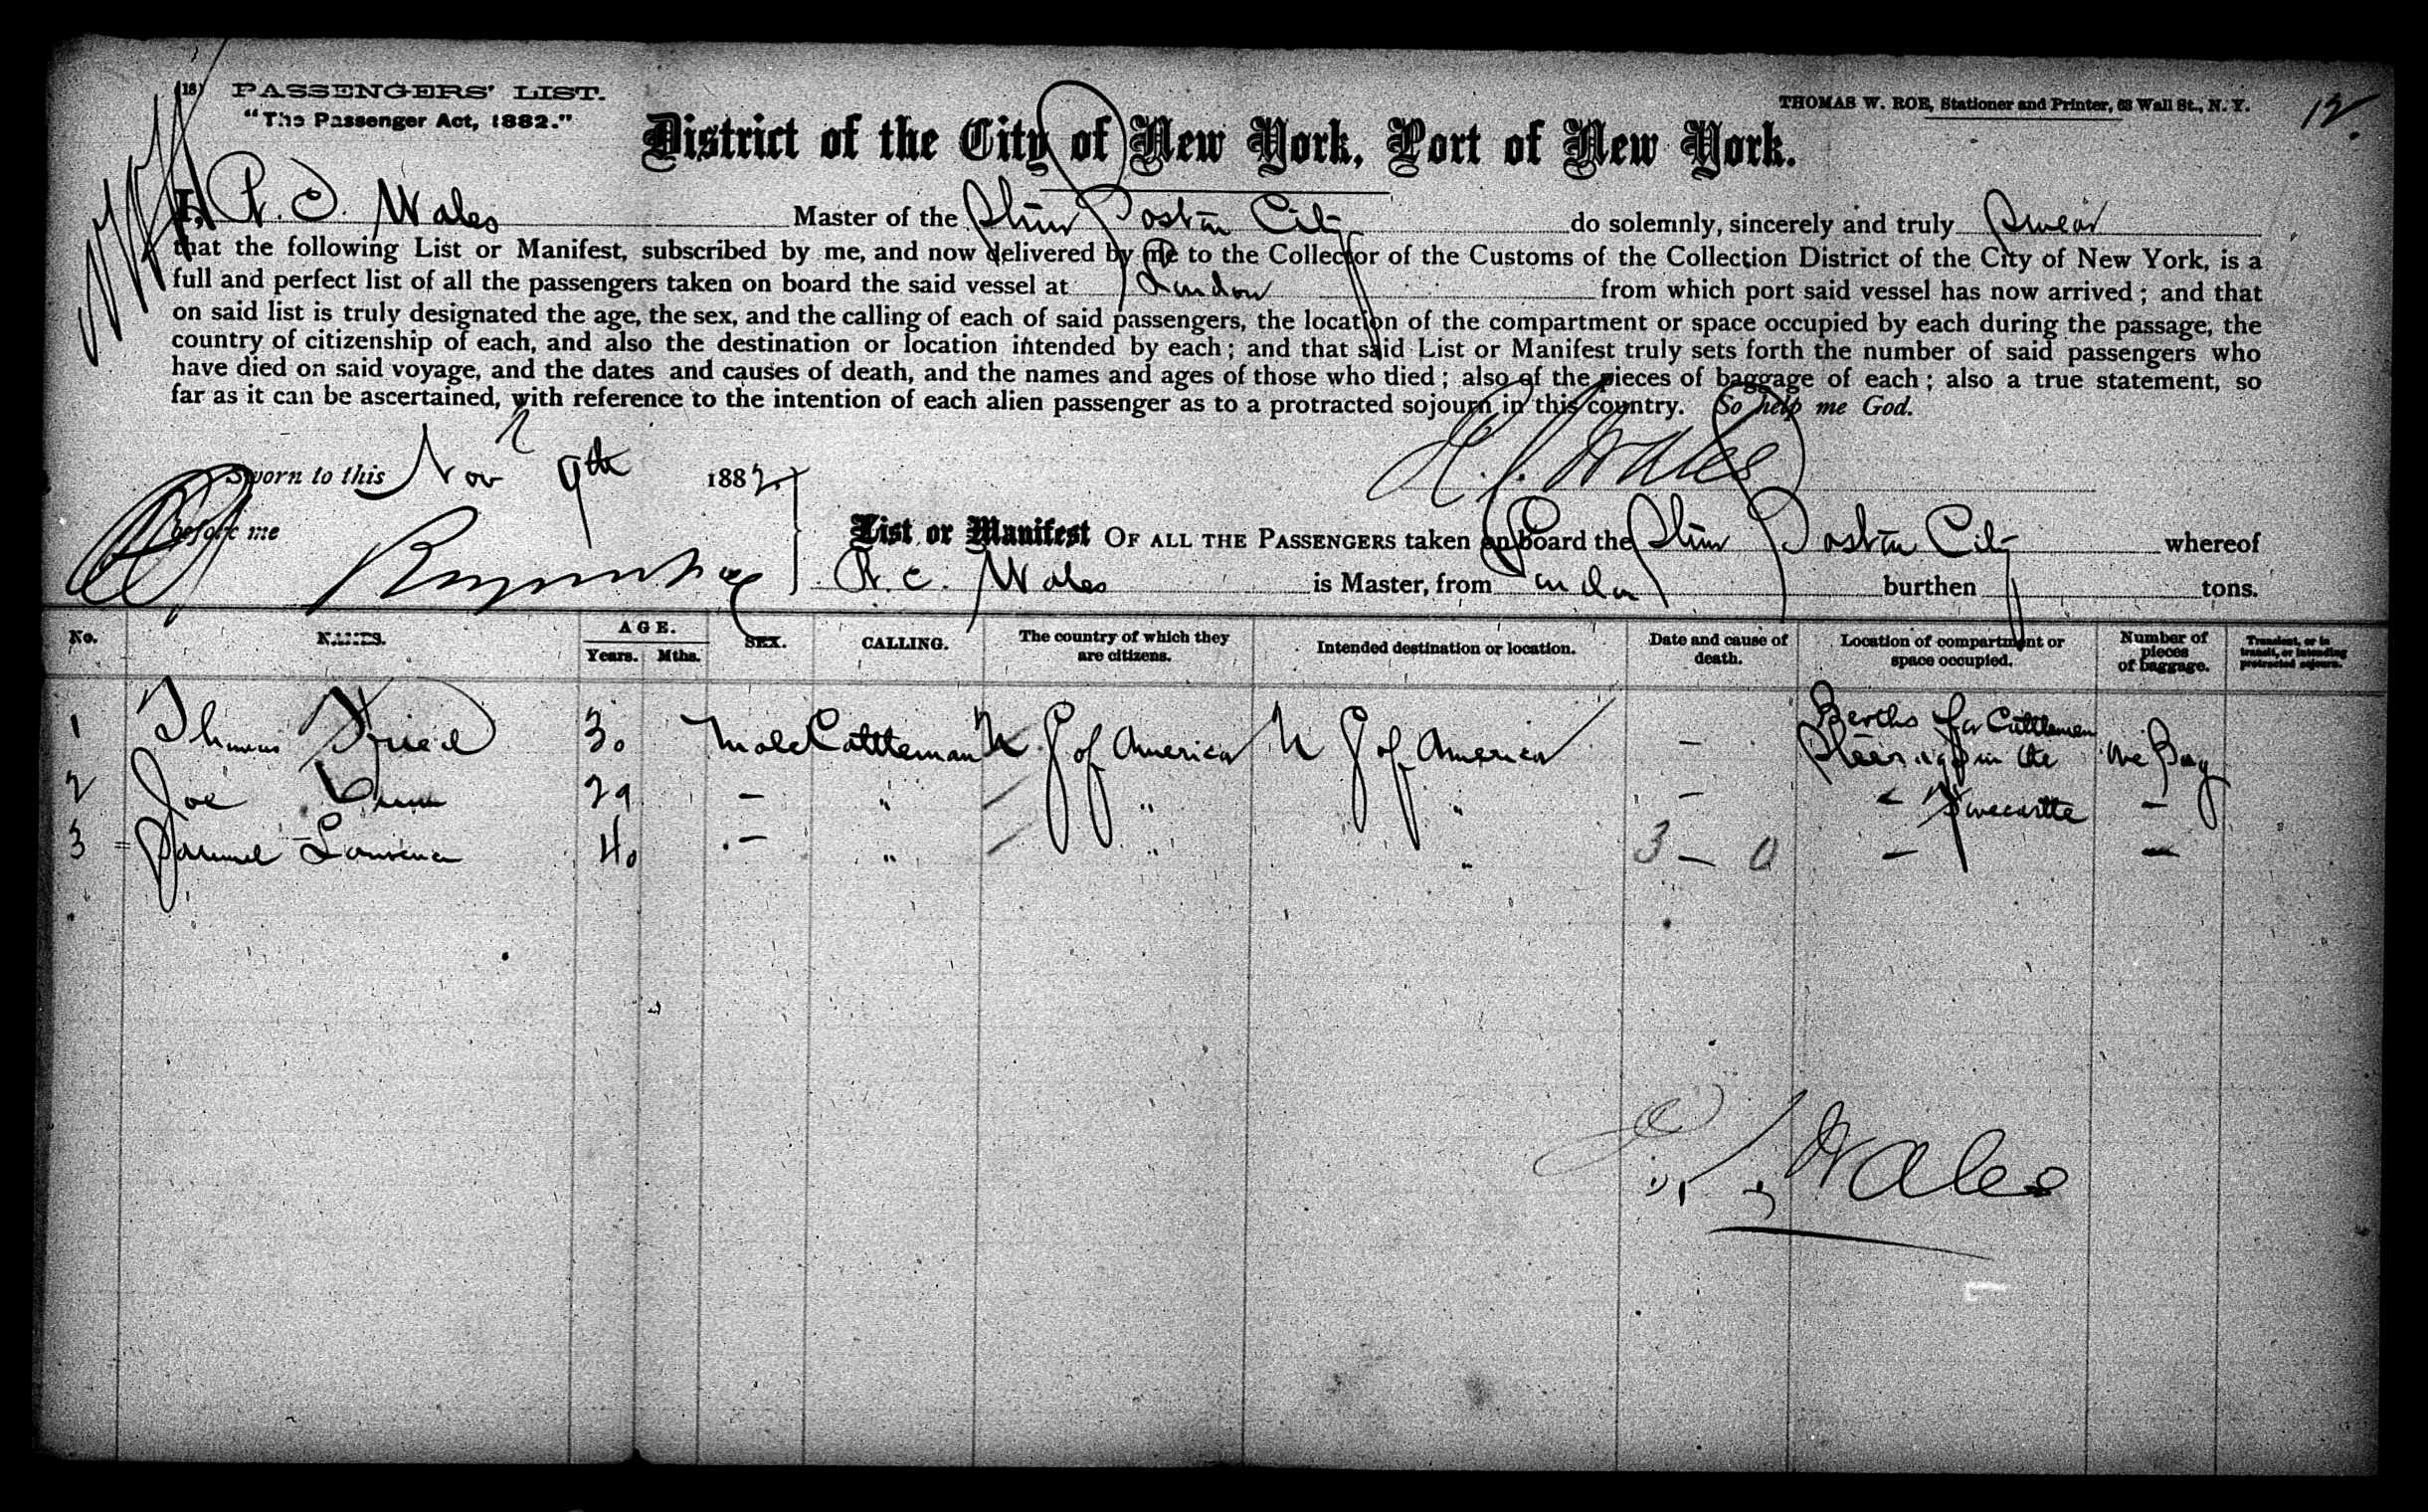 (18) PASSENGERS' LIST.
"The Passenger Act, 1882."
THOMAS W. ROE, Stationer and Printer, 63 Wall St., N. Y.
12.
District of the City of New York, Port of New York.
I, R. C. Wales Master of the Stmr Boston City do solemnly, sincerely and truly Swear
that the following List or Manifest, subscribed by me, and now delivered by me to the Collector of the Customs of the Collection District of the City of New York, is a
full and perfect list of all the passengers taken on board the said vessel at London from which port said vessel has now arrived; and that
on said list is truly designated the age, the sex, and the calling of each of said passengers, the location of the compartment or space occupied by each during the passage, the
country of citizenship of each, and also the destination or location intended by each; and that said List or Manifest truly sets forth the number of said passengers who
have died on said voyage, and the dates and causes of death, and the names and ages of those who died; also of the pieces of baggage of each; also a true statement, so
far as it can be ascertained, with reference to the intention of each alien passenger as to a protracted sojourn in this country. So help me God.
Sworn to this Nov 9th 1882 Wales
before me
List or Manifest OF ALL THE PASSENGERS taken on board the Stmr Boston City whereof
R. C. Wales is Master, from London burthen tons.
No. NAMES. AGE. Years. Mths. SEX. CALLING. The country of which they are citizens. Intended destination or location. Date and cause of death. Location of compartment or space occupied. Number of pieces of baggage. Transient, or in transit, or intending protracted sojourn.
1 Thomas 30 Male Cattleman U S of America U S of America — Berths for Cattlemen in the One Bag
2 Joe 29 — " " " — " —
3 Samuel Lawrence 40 — " " " 3 — 0 — —
Wales